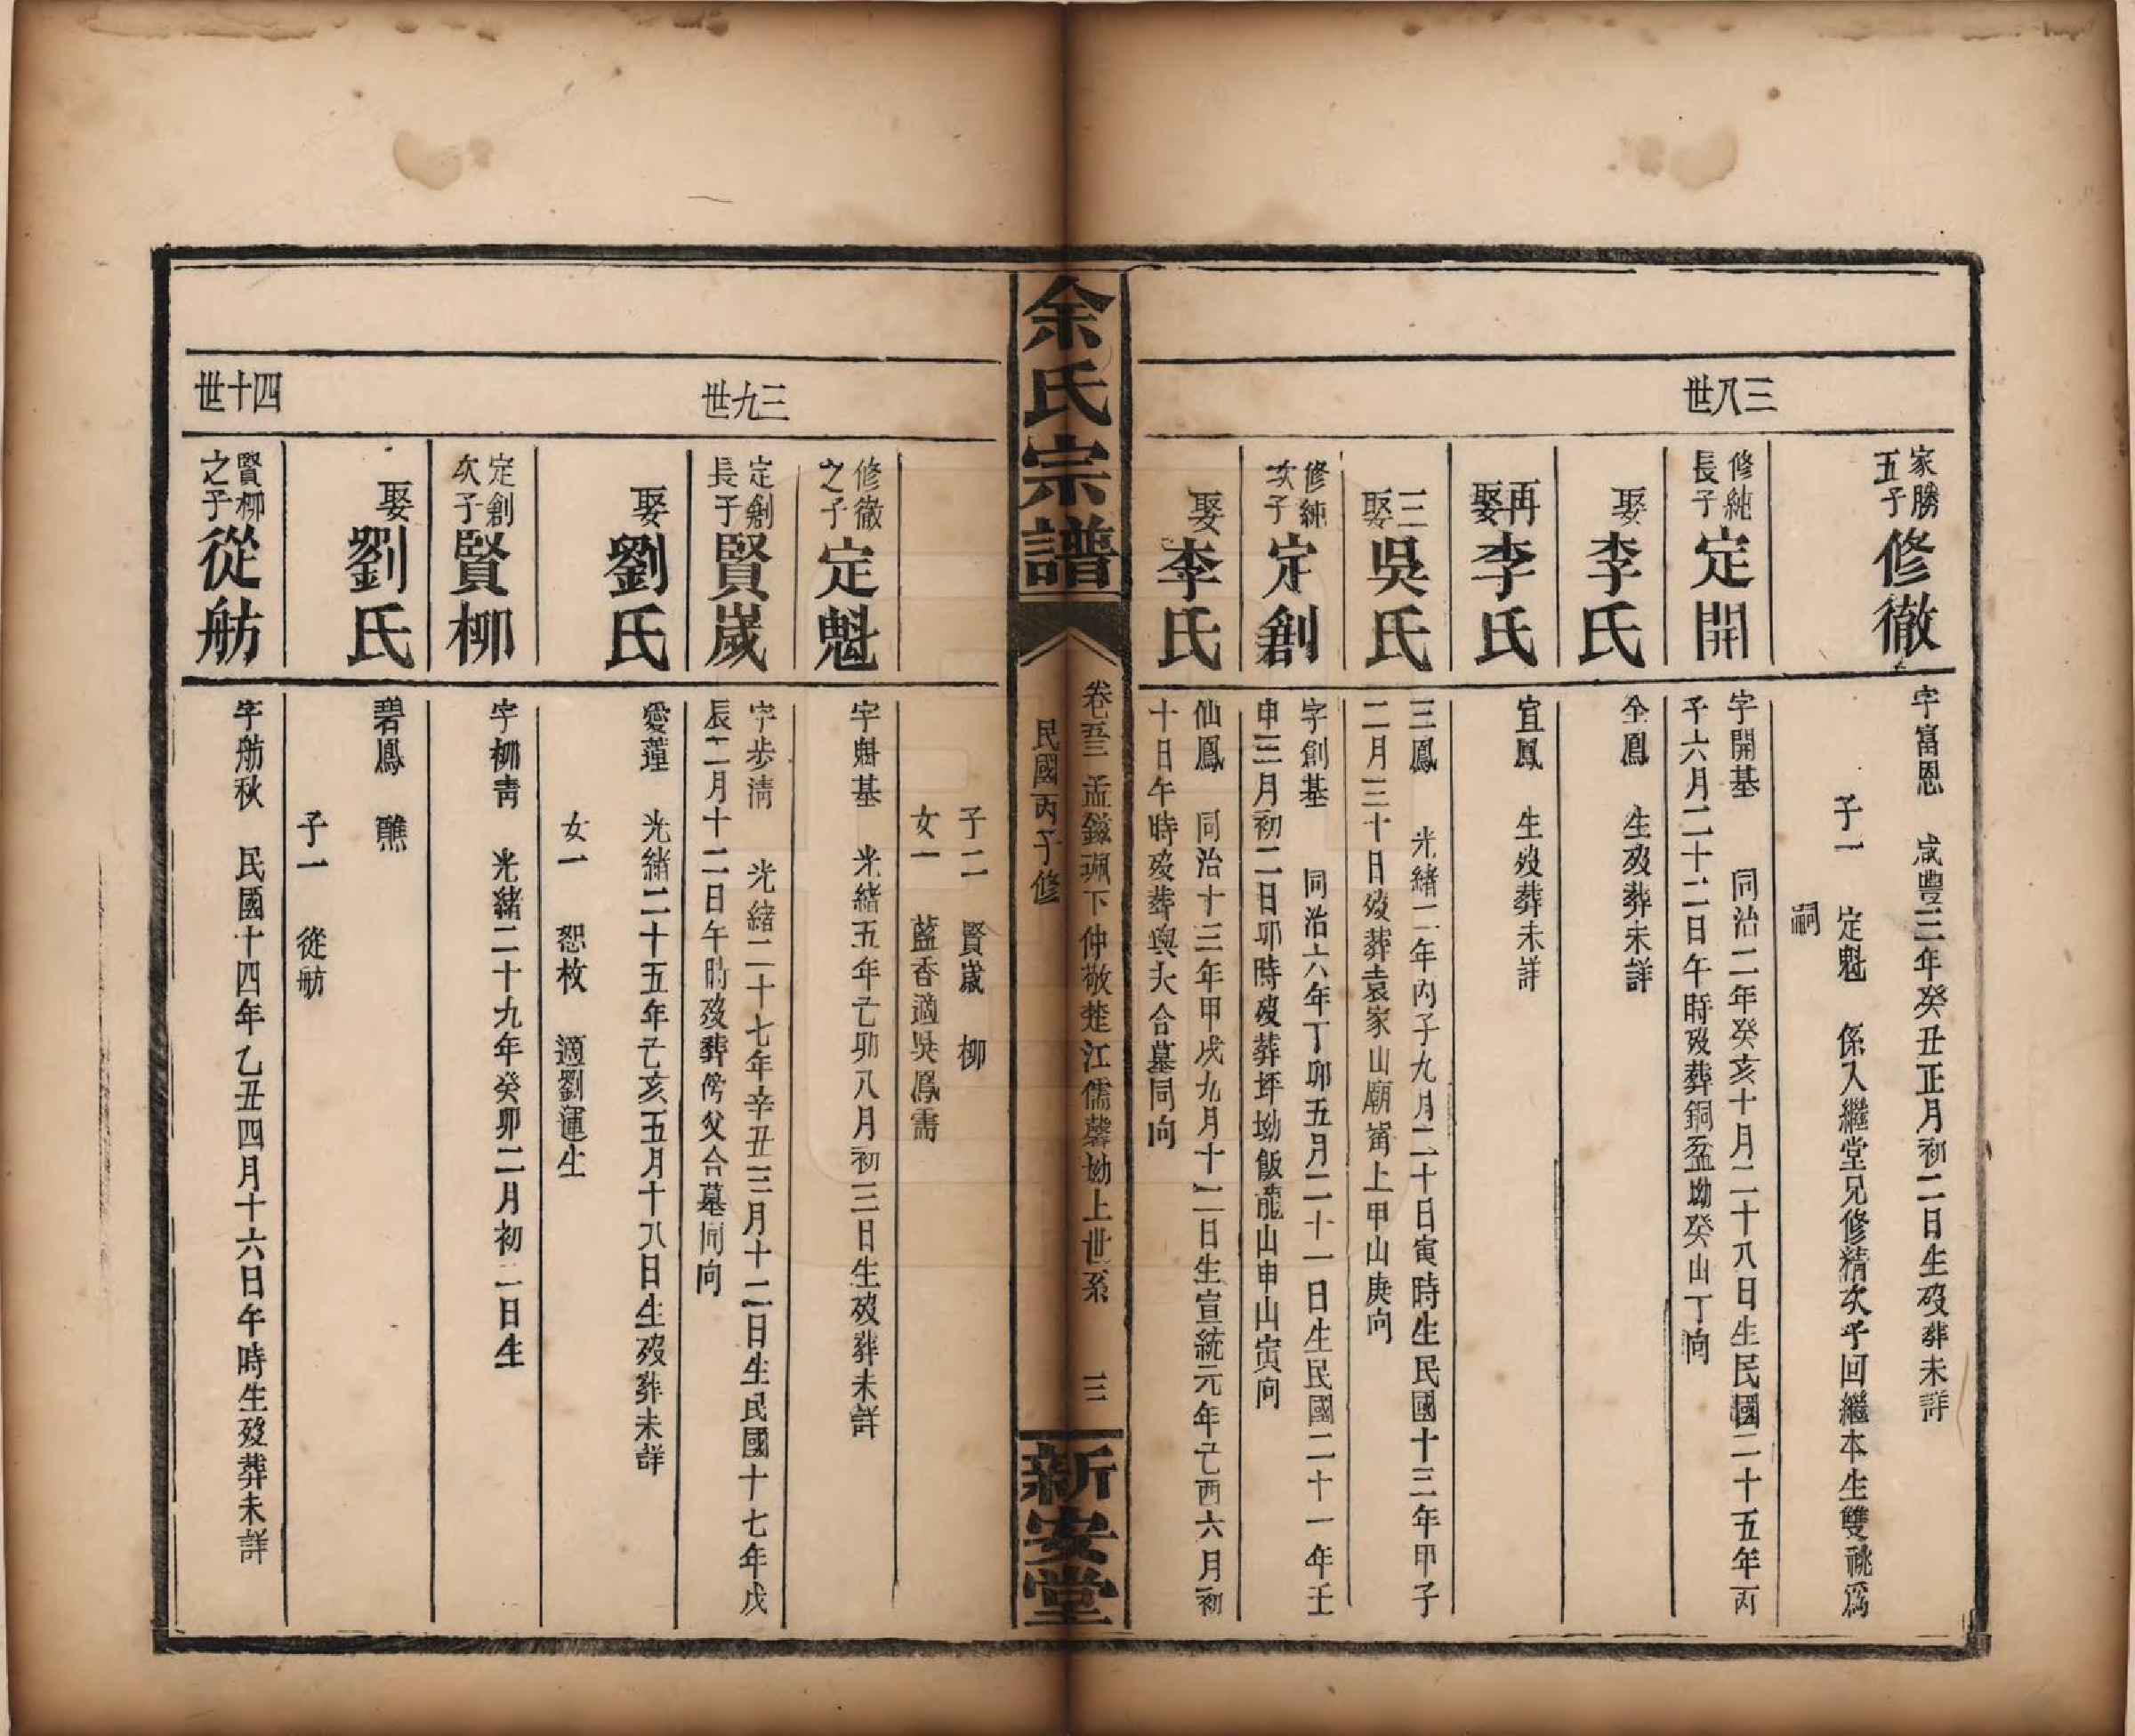 三八世
家勝五子修徹
字富恩　咸豐三年癸丑正月初二日生歿葬未詳
子一　定魁　係入繼堂兄修精次子回繼本生雙祧爲
嗣
修純長子定開
字開基　同治二年癸亥十月二十八日生民國二十五年丙
子六月二十二日午時歿葬銅盆坳癸山丁向
娶李氏
全鳳　生歿葬未詳
再娶李氏
宜鳳　生歿葬未詳
三娶吳氏
三鳳　光緒二年丙子九月二十日寅時生民國十三年甲子
二月三十日歿葬袁家山廟嵜上甲山庚向
修純次子定創
字創基　同治六年丁卯五月二十一日生民國二十一年壬
申三月初二日卯時歿葬坪坳飯龍山申山寅向
娶李氏
仙鳳　同治十三年甲戌九月十二日生宣統元年己酉六月初
十日午時歿葬與夫合墓同向
余氏宗譜
卷　孟鎡珮下仲敬楚江儒馨坳上世系　三
民國丙子修
新安堂
子二　賢崴　柳
女一　藍香適吳鳳
三九世
修徹之子定魁
字魁基　光緒五年己卯八月初三日生歿葬未詳
定創長子賢崴
字步清　光緒二十七年辛丑三月十二日生民國十七年戊
辰二月十二日午時歿葬傍父合墓同向
娶劉氏
愛蓮　光緒二十五年己亥五月十八日生歿葬未詳
女一　恕枚　適劉運生
定創次子賢柳
字柳青　光緒二十九年癸卯二月初二日生
娶劉氏
碧鳳　醮
子一　從舫
四十世
賢柳之子從舫
字舫秋　民國十四年乙丑四月十六日午時生歿葬未詳